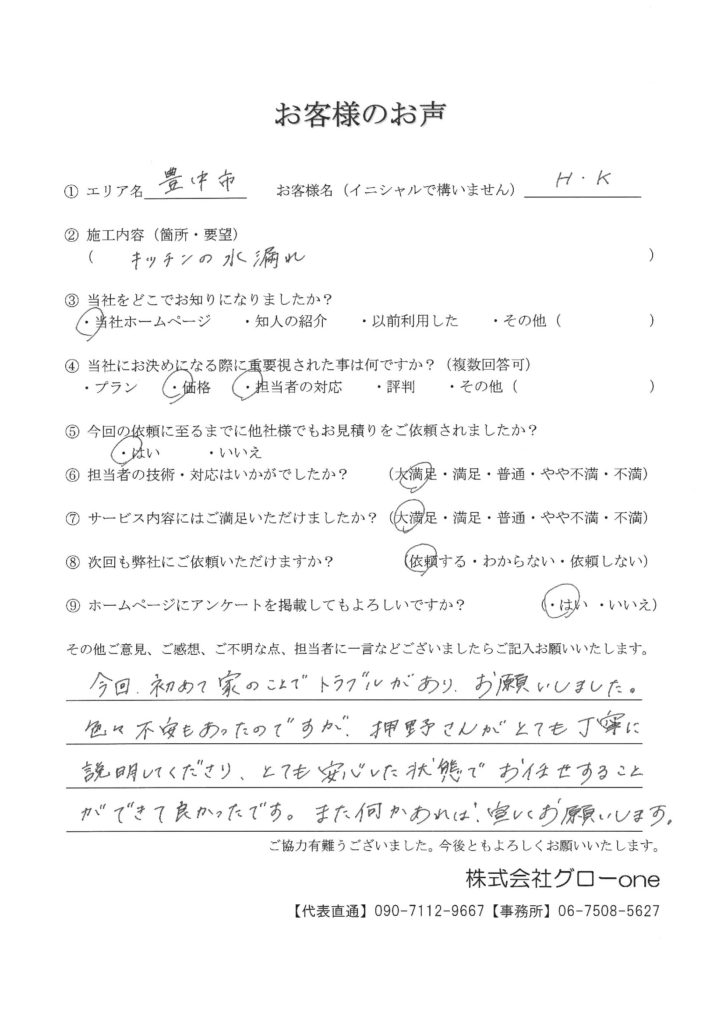 お客様のお声
① エリア名 豊中市 お客様名（イニシャルで構いません） H・K
② 施工内容（箇所・要望）
（ キッチンの水漏れ ）
③ 当社をどこでお知りになりましたか？
・当社ホームページ ・知人の紹介 ・以前利用した ・その他（ ）
④ 当社にお決めになる際に重要視された事は何ですか？（複数回答可）
・プラン ・価格 ・担当者の対応 ・評判 ・その他（ ）
⑤ 今回の依頼に至るまでに他社様でもお見積りをご依頼されましたか？
・はい ・いいえ
⑥ 担当者の技術・対応はいかがでしたか？ （大満足・満足・普通・やや不満・不満）
⑦ サービス内容にはご満足いただけましたか？（大満足・満足・普通・やや不満・不満）
⑧ 次回も弊社にご依頼いただけますか？ （依頼する・わからない・依頼しない）
⑨ ホームページにアンケートを掲載してもよろしいですか？ （・はい ・いいえ）
その他ご意見、ご感想、ご不明な点、担当者に一言などございましたらご記入お願いいたします。
今回、初めて家のことでトラブルがあり、お願いしました。
色々不安もあったのですが、押野さんがとても丁寧に
説明してくださり、とても安心した状態でお任せすること
ができて良かったです。また何かあれば、宜しくお願いします。
ご協力有難うございました。今後ともよろしくお願いいたします。
株式会社グローone
【代表直通】090-7112-9667【事務所】06-7508-5627